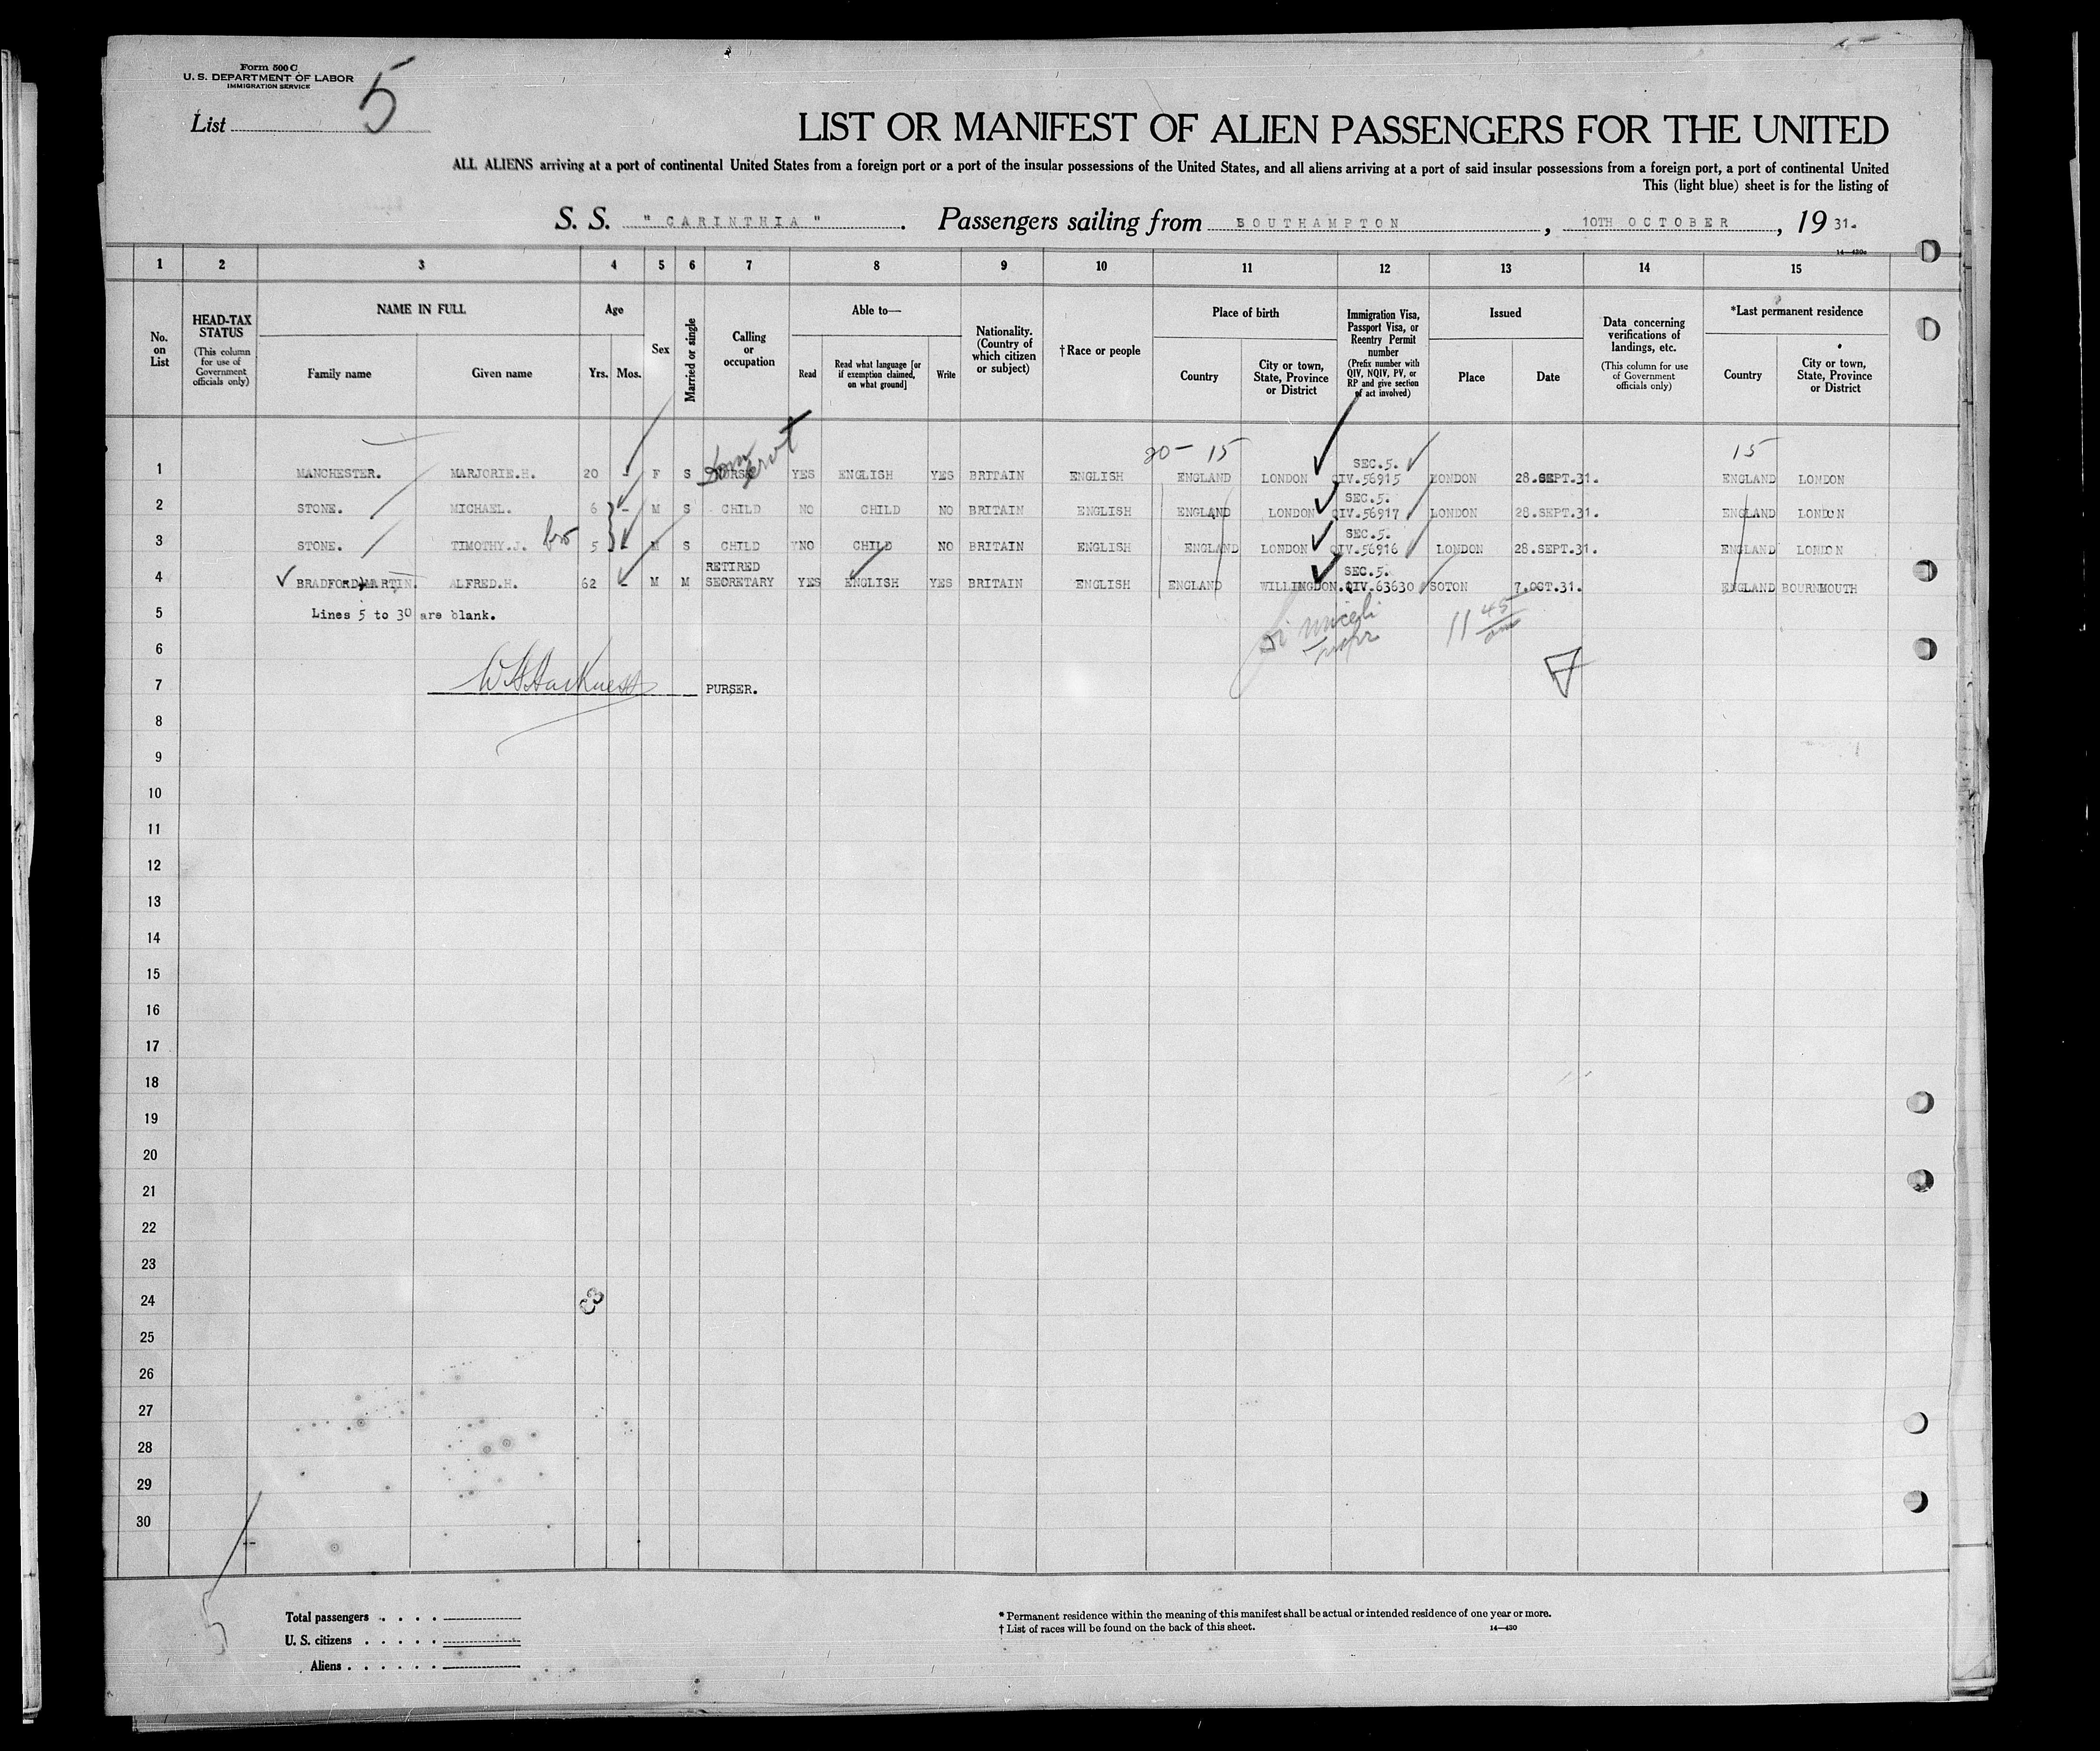 Form 500 C
U. S. DEPARTMENT OF LABOR
IMMIGRATION SERVICE
List 5
LIST OR MANIFEST OF ALIEN PASSENGERS FOR THE UNITED
ALL ALIENS arriving at a port of continental United States from a foreign port or a port of the insular possessions of the United States, and all aliens arriving at a port of said insular possessions from a foreign port, a port of continental United
This (light blue) sheet is for the listing of
S. S. "CARINTHIA". Passengers sailing from SOUTHAMPTON, 10TH OCTOBER, 19 31.
14—430c
1 2 3 4 5 6 7 8 9 10 11 12 13 14 15
No. on List
HEAD-TAX STATUS
(This column for use of Government officials only)
NAME IN FULL
Family name
Given name
Age
Yrs.
Mos.
Sex
Married or single
Calling or occupation
Able to—
Read
Read what language [or if exemption claimed, on what ground]
Write
Nationality. (Country of which citizen or subject)
†Race or people
Place of birth
Country
City or town, State, Province or District
Immigration Visa, Passport Visa, or Reentry Permit number
(Prefix number with QIV, NQIV, PV, or RP and give section of act involved)
Issued
Place
Date
Data concerning verifications of landings, etc.
(This column for use of Government officials only)
*Last permanent residence
Country
City or town, State, Province or District
20 - 15 15
1 MANCHESTER. MARJORIE.H. 20 - F S NURSE Dom Servt YES ENGLISH YES BRITAIN ENGLISH ENGLAND LONDON SEC.5. QIV.56915 LONDON 28.SEPT.31. ENGLAND LONDON
2 STONE. MICHAEL. 6 - M S CHILD NO CHILD NO BRITAIN ENGLISH ENGLAND LONDON SEC.5. QIV.56917 LONDON 28.SEPT.31. ENGLAND LONDON
3 STONE. TIMOTHY.J. bro 5 - M S CHILD NO CHILD NO BRITAIN ENGLISH ENGLAND LONDON SEC.5. QIV.56916 LONDON 28.SEPT.31. ENGLAND LONDON
4 BRADFORD,MARTIN. ALFRED.H. 62 - M M RETIRED SECRETARY YES ENGLISH YES BRITAIN ENGLISH ENGLAND WILLINGDON. SEC.5. QIV.63630 SOTON 7.OCT.31. ENGLAND BOURNMOUTH
5 Lines 5 to 30 are blank.
11 45 am
6
7 W Harkness PURSER.
8
9
10
11
12
13
14
15
16
17
18
19
20
21
22
23
24
25
26
27
28
29
30
5
Total passengers . . . .
U. S. citizens . . . . .
Aliens . . . . . .
* Permanent residence within the meaning of this manifest shall be actual or intended residence of one year or more.
† List of races will be found on the back of this sheet.
14—430